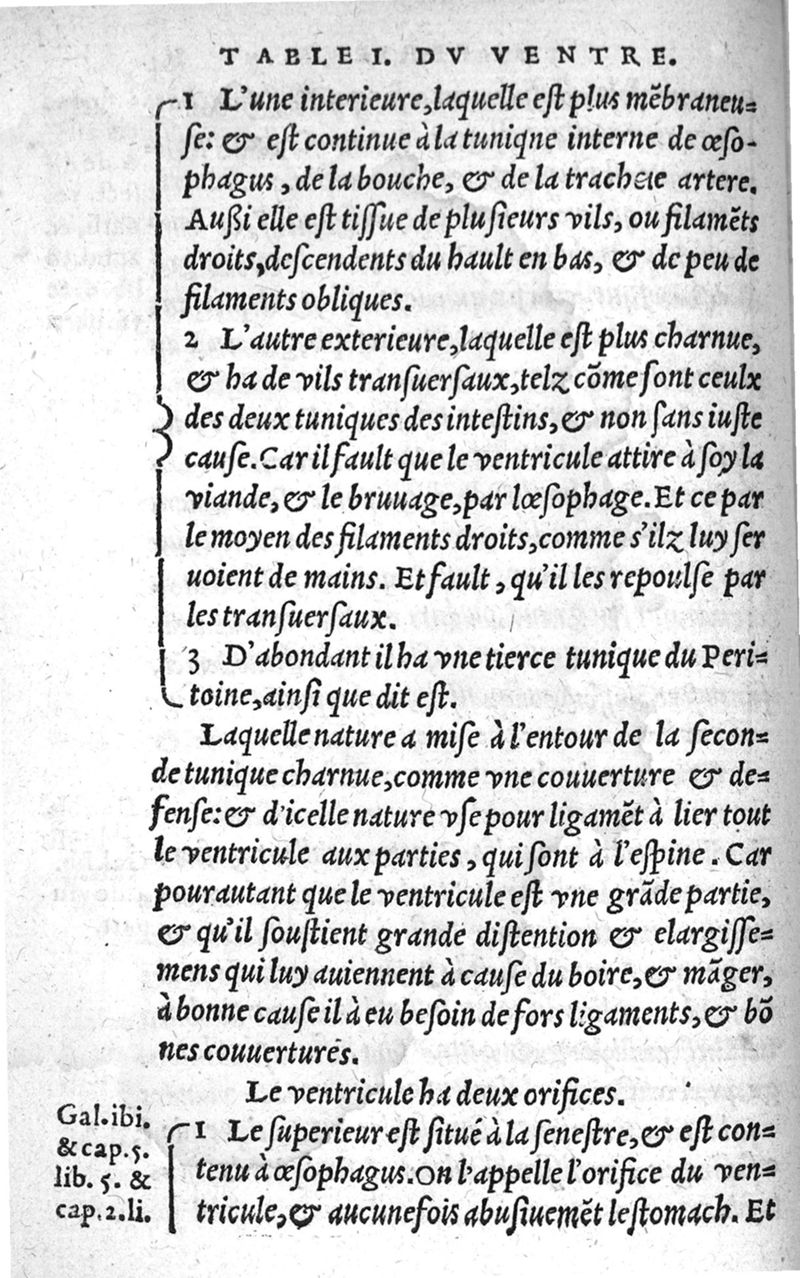 TABLE I. DV VENTRE.
1 L'une interieure, laquelle est plus mẽbraneu=
se: & est continue à la tunique interne de œso-
phagus, de la bouche, & de la tracheæ artere.
Außi elle est tissue de plusieurs vils, ou filamẽts
droits, descendents du hault en bas, & de peu de
filaments obliques.
2 L'autre exterieure, laquelle est plus charnue,
& ha de vils transuersaux, telz cõme sont ceulx
des deux tuniques des intestins, & non sans iuste
cause. Car il fault que le ventricule attire à soy la
viande, & le bruuage, par lœsophage. Et ce par
le moyen des filaments droits, comme s'ilz luy ser
uoient de mains. Et fault, qu'il les repoulse par
les transuersaux.
3 D'abondant il ha vne tierce tunique du Peri=
toine, ainsi que dit est.
Laquelle nature a mise à l'entour de la secon=
de tunique charnue, comme vne couuerture & de=
fense: & d'icelle nature vse pour ligamẽt à lier tout
le ventricule aux parties, qui sont à l'espine. Car
pourautant que le ventricule est vne grãde partie,
& qu'il soustient grande distention & elargisse=
mens qui luy auiennent à cause du boire, & mãger,
à bonne cause il à eu besoin de fors ligaments, & bõ
nes couuertures.
Le ventricule ha deux orifices.
Gal. ibi.
& cap. 5.
lib. 5. &
cap. 2. li.
1 Le superieur est situé à la senestre, & est con=
tenu à œsophagus. On l'appelle l'orifice du ven=
tricule, & aucunefois abusiuemẽt lestomach. Et